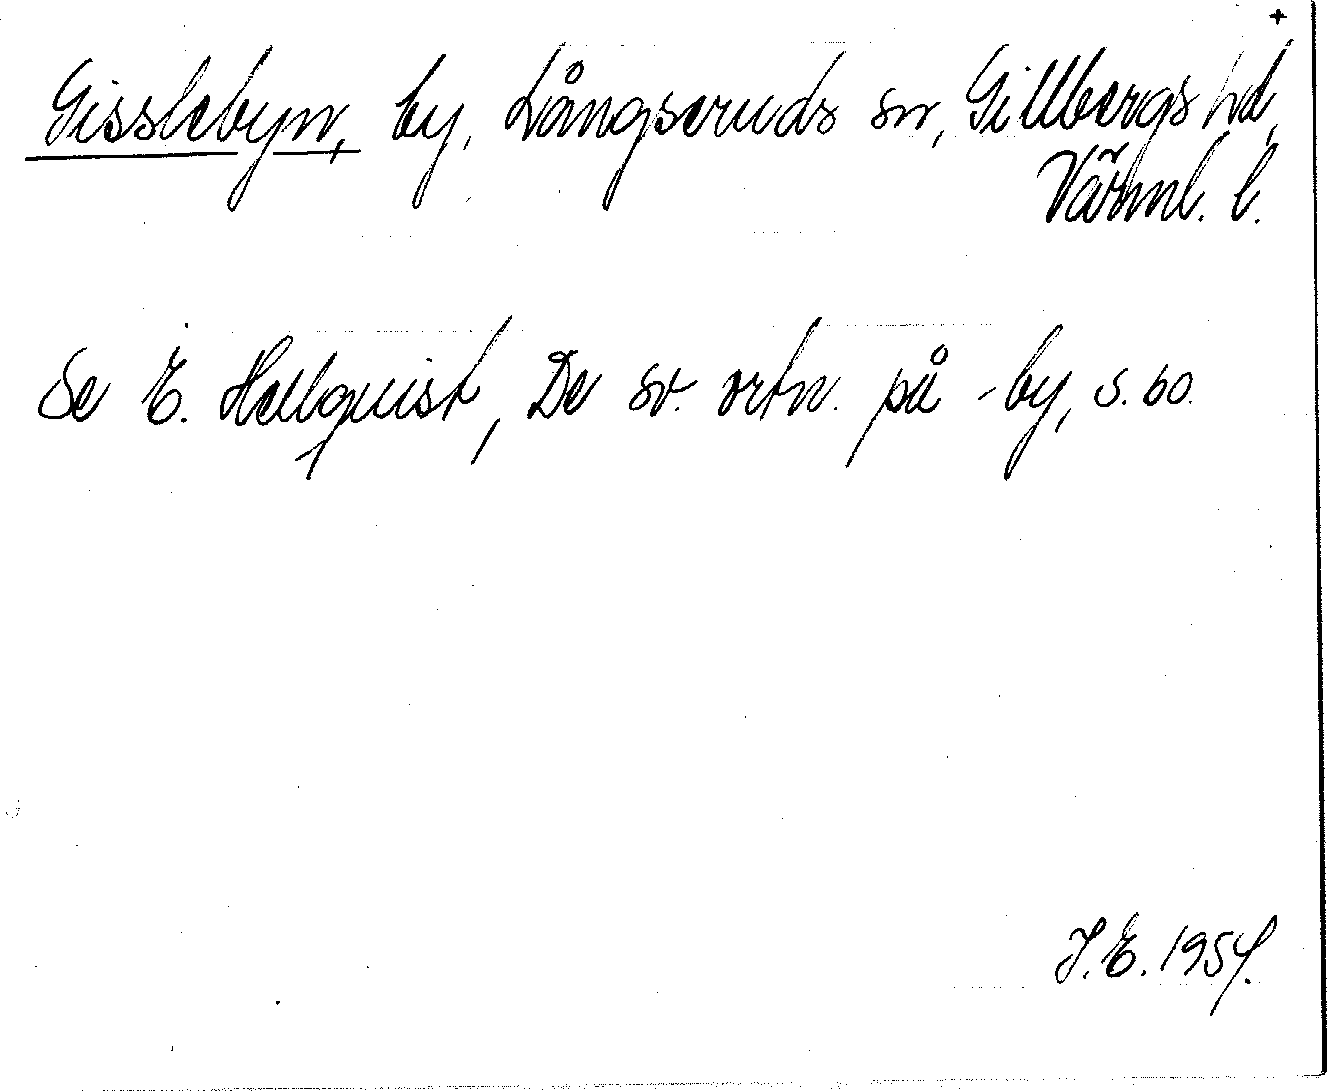 +
Gisslebyn, by, Långseruds sn, Gillbergs hd,
Värml. l.
Se E. Hellquist, De sv. ortn. på -by, s. 60.
J. E. 1954.